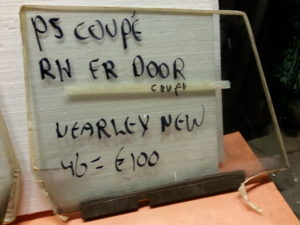 P5 COUPÉ
RH FR DOOR
COUPE
NEARLEY NEW
46 = £100